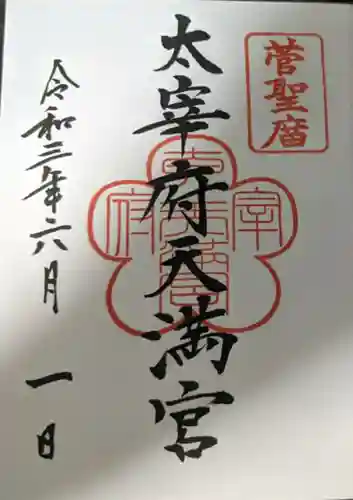 菅聖廟
太宰府天満宮
令和三年六月一日